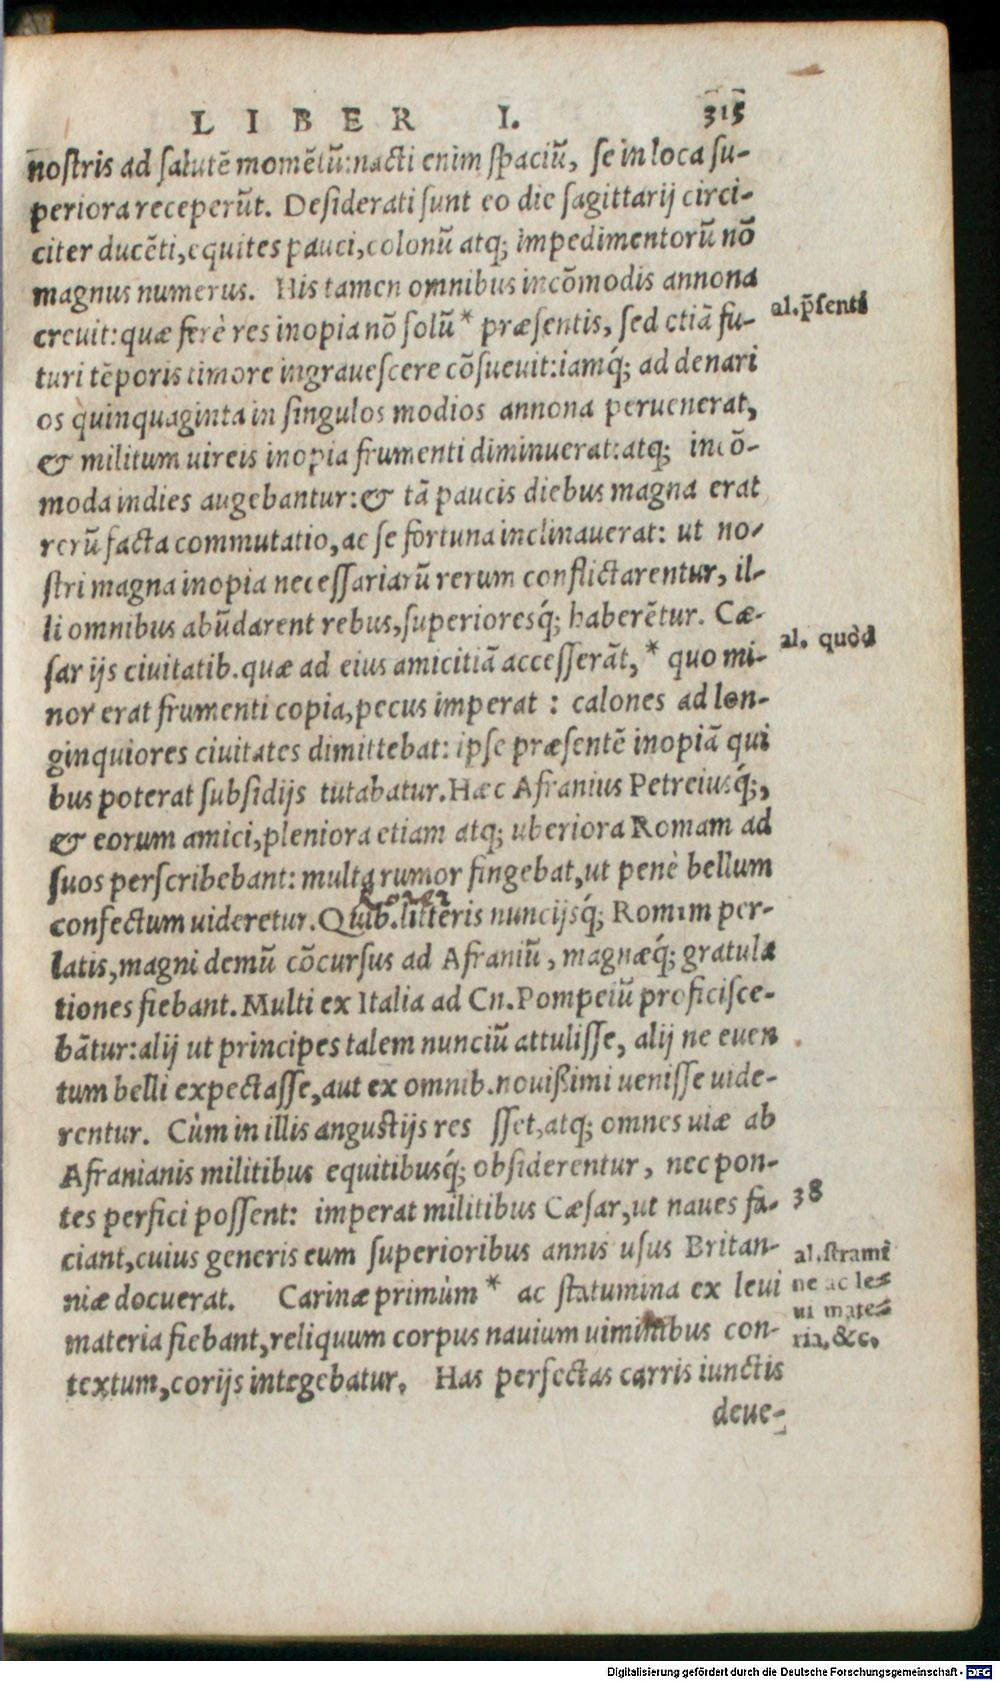 LIBER I. 315
nostris ad salutē momētū: nacti enim spaciū, se in loca su-
periora receperūt. Desiderati sunt eo die sagittarij circi-
citer ducēti, equites pauci, colonū atq; impedimentorū nō
magnus numerus. His tamen omnibus incōmodis annona
al. p̄senti
creuit: quæ ferè res inopia nō solū * præsentis, sed etiā fu-
turi tēporis timore ingrauescere cōsueuit: iamq́; ad denari
os quinquaginta in singulos modios annona peruenerat,
& militum uireis inopia frumenti diminuerat: atq; incō-
moda indies augebantur: & tā paucis diebus magna erat
rerū facta commutatio, ac se fortuna inclinauerat: ut no-
stri magna inopia necessariarū rerum conflictarentur, il-
li omnibus abūdarent rebus, superioresq́; haberētur. Cæ-
al. quòd
sar ijs ciuitatib. quæ ad eius amicitiā accesserāt, * quo mi-
nor erat frumenti copia, pecus imperat : calones ad lon-
ginquiores ciuitates dimittebat: ipse præsentē inopiā qui
bus poterat subsidijs tutabatur. Hæc Afranius Petreiusq́;,
& eorum amici, pleniora etiam atq; uberiora Romam ad
suos perscribebant: multa rumor fingebat, ut penè bellum
confectum uideretur. Quib. litteris nuncijsq́; Romam per-
latis, magni demū cōcursus ad Afraniū, magnæq́; gratula
tiones fiebant. Multi ex Italia ad Cn. Pompeiū proficisce-
bātur: alij ut principes talem nunciū attulisse, alij ne euen
tum belli expectasse, aut ex omnib. nouißimi uenisse uide-
rentur. Cùm in illis angustijs res sset, atq; omnes uiæ ab
Afranianis militibus equitibusq́; obsiderentur, nec pon-
38
tes perfici possent: imperat militibus Cæsar, ut naues fa-
ciant, cuius generis eum superioribus annis usus Britan-
al. stramī
ne ac le=
ui mate=
ria. &c.
niæ docuerat. Carinæ primùm * ac statumina ex leui
materia fiebant, reliquum corpus nauium uiminibus con-
textum, corijs integebatur. Has perfectas carris iunctis
deue-
Digitalisierung gefördert durch die Deutsche Forschungsgemeinschaft - DFG